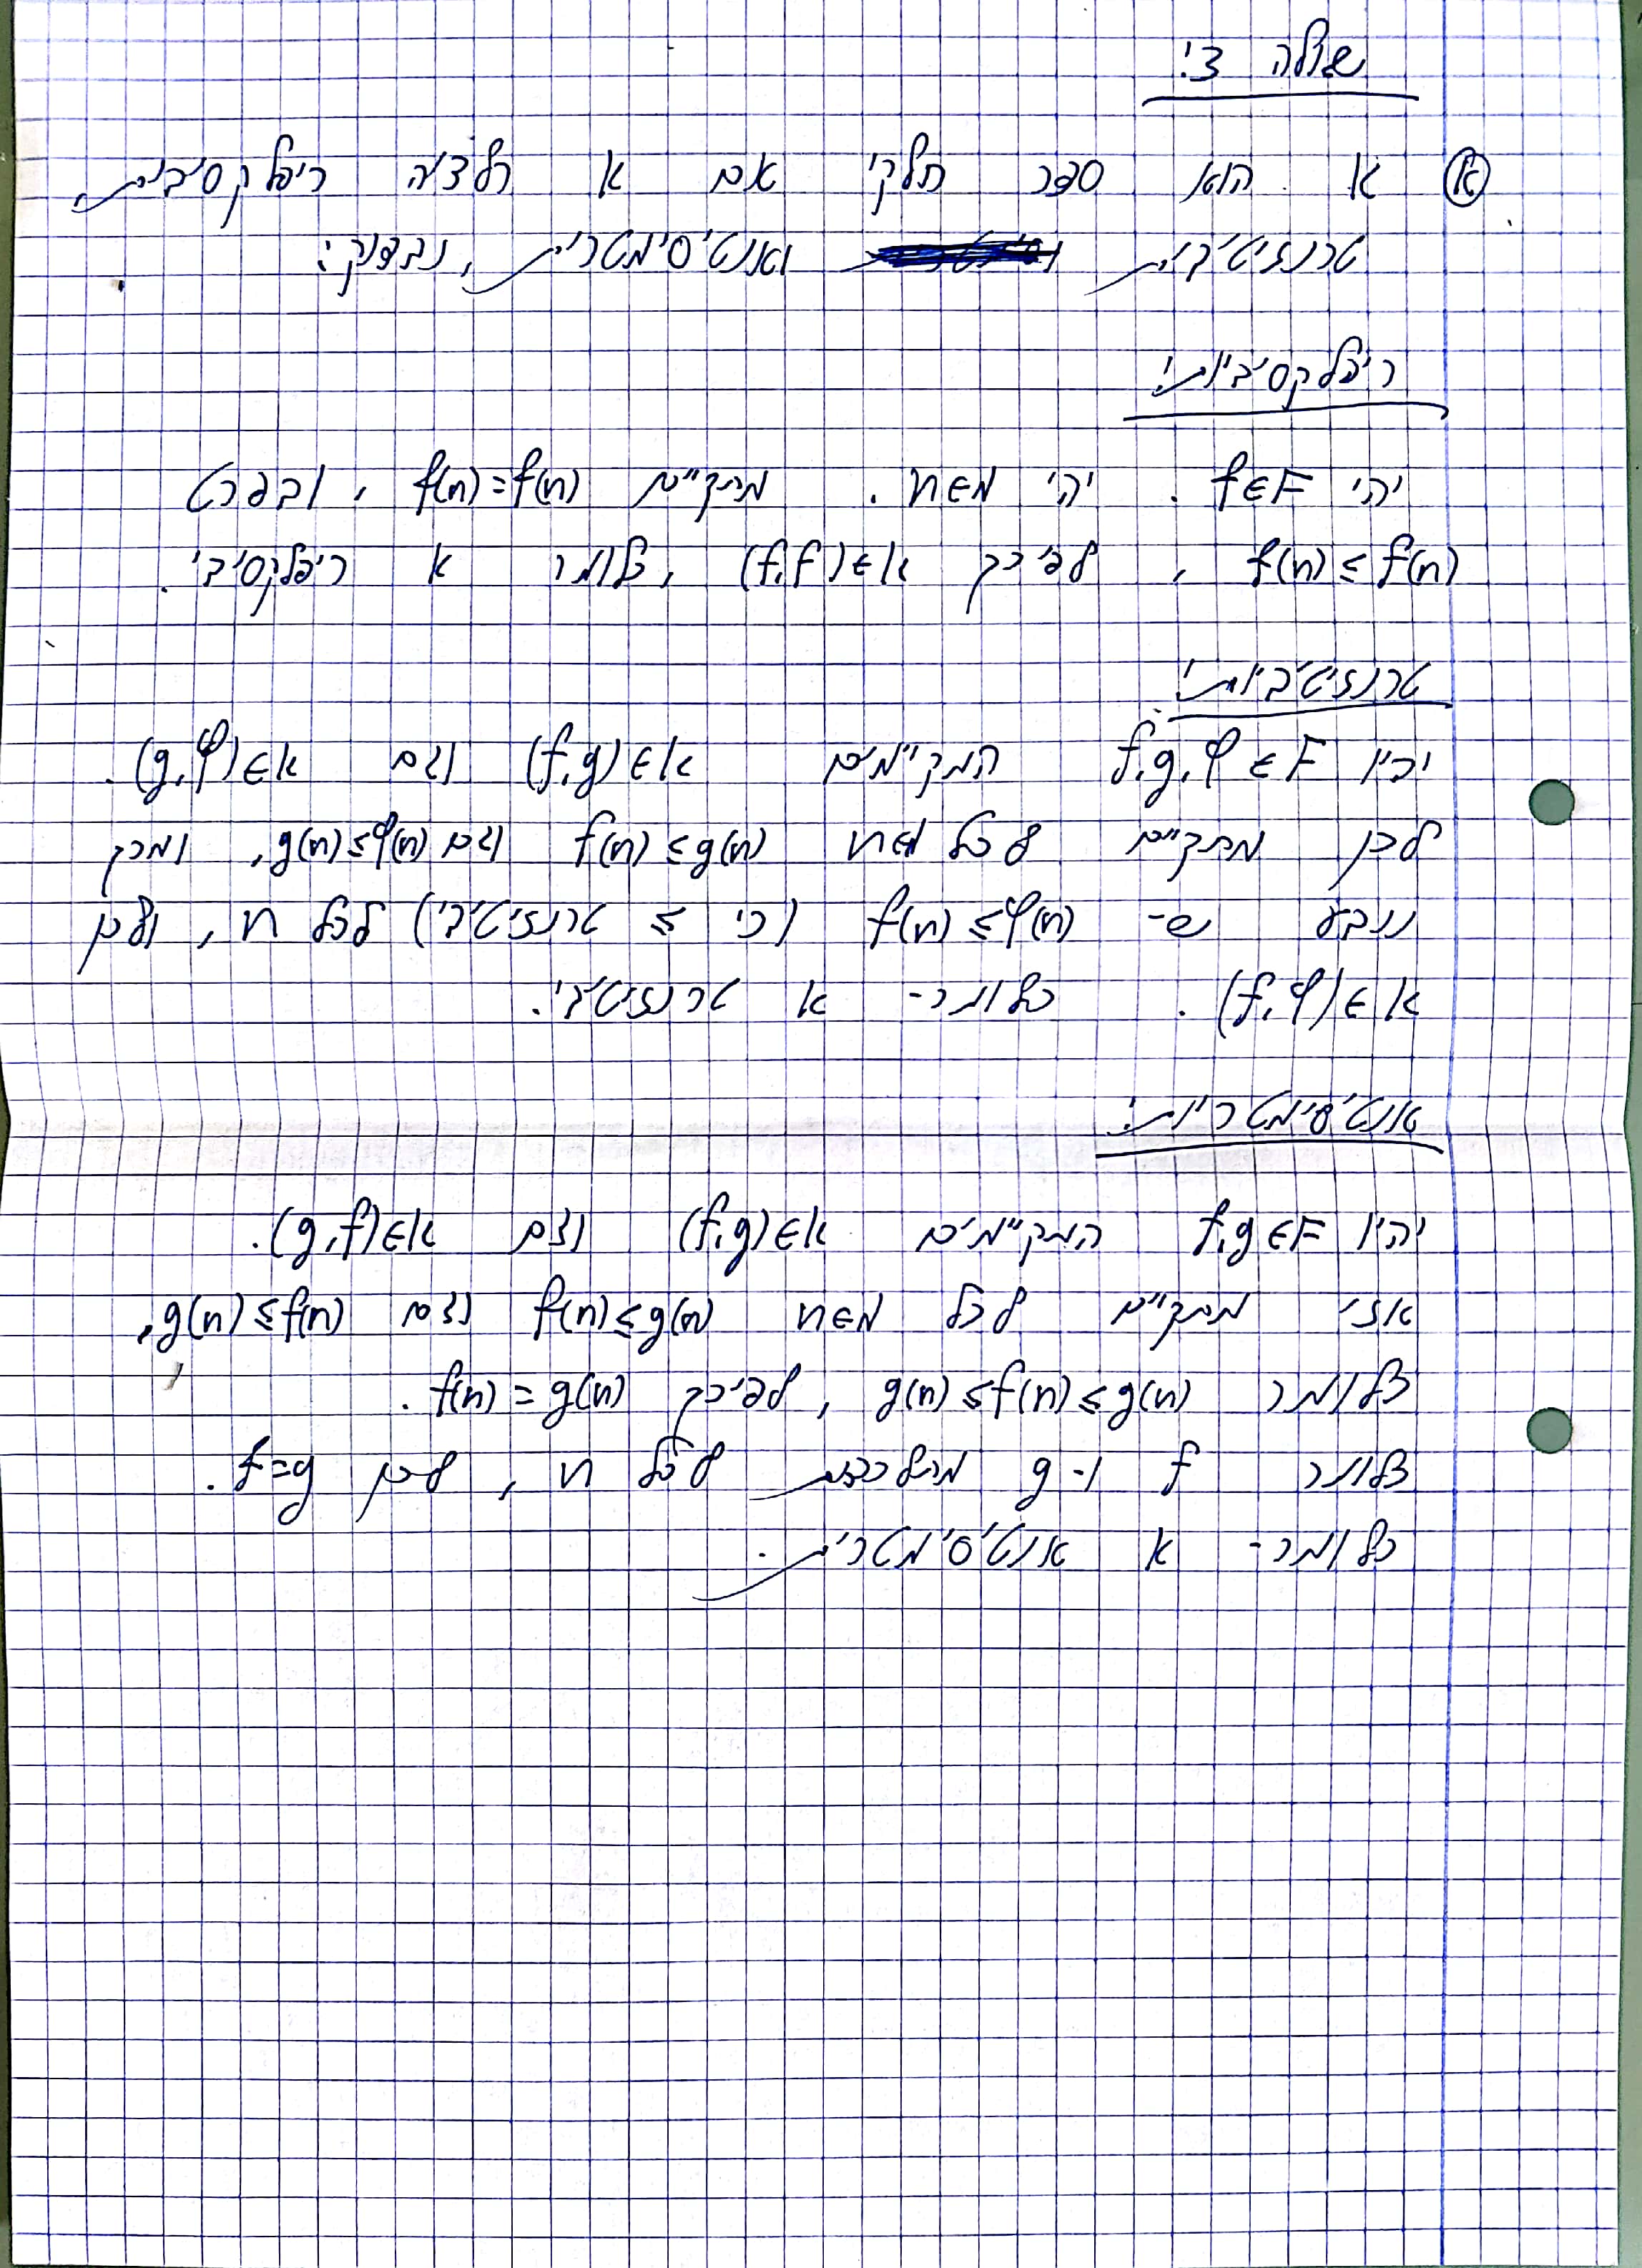 שאלה 3:
(א) א הוא סדר חלקי אם א רלציה ריפלקסיבית,
טרנזיטיבית ואנטיסימטרית, נבדוק:
ריפלקסיביות:
יהי f∈F. יהי n∈ℕ. מתקיים f(n)=f(n), ובפרט
f(n)≤f(n), לפיכך (f,f)∈א, כלומר א ריפלקסיבי.
טרנזיטיביות:
יהיו f,g,φ∈F המקיימים (f,g)∈א וגם (g,φ)∈א.
לכן מתקיים לכל n∈ℕ f(n)≤g(n) וגם g(n)≤φ(n), ומכך
נובע ש- f(n)≤φ(n) (כי ≤ טרנזיטיבי) לכל n, ולכן
(f,φ)∈א. כלומר- א טרנזיטיבי.
אנטיסימטריות:
יהיו f,g∈F המקיימים (f,g)∈א וגם (g,f)∈א.
אזי מתקיים לכל n∈ℕ f(n)≤g(n) וגם g(n)≤f(n),
כלומר g(n)≤f(n)≤g(n), לפיכך f(n)=g(n).
כלומר f ו-g מתלכדות לכל n, לכן f=g.
כלומר- א אנטיסימטרית.